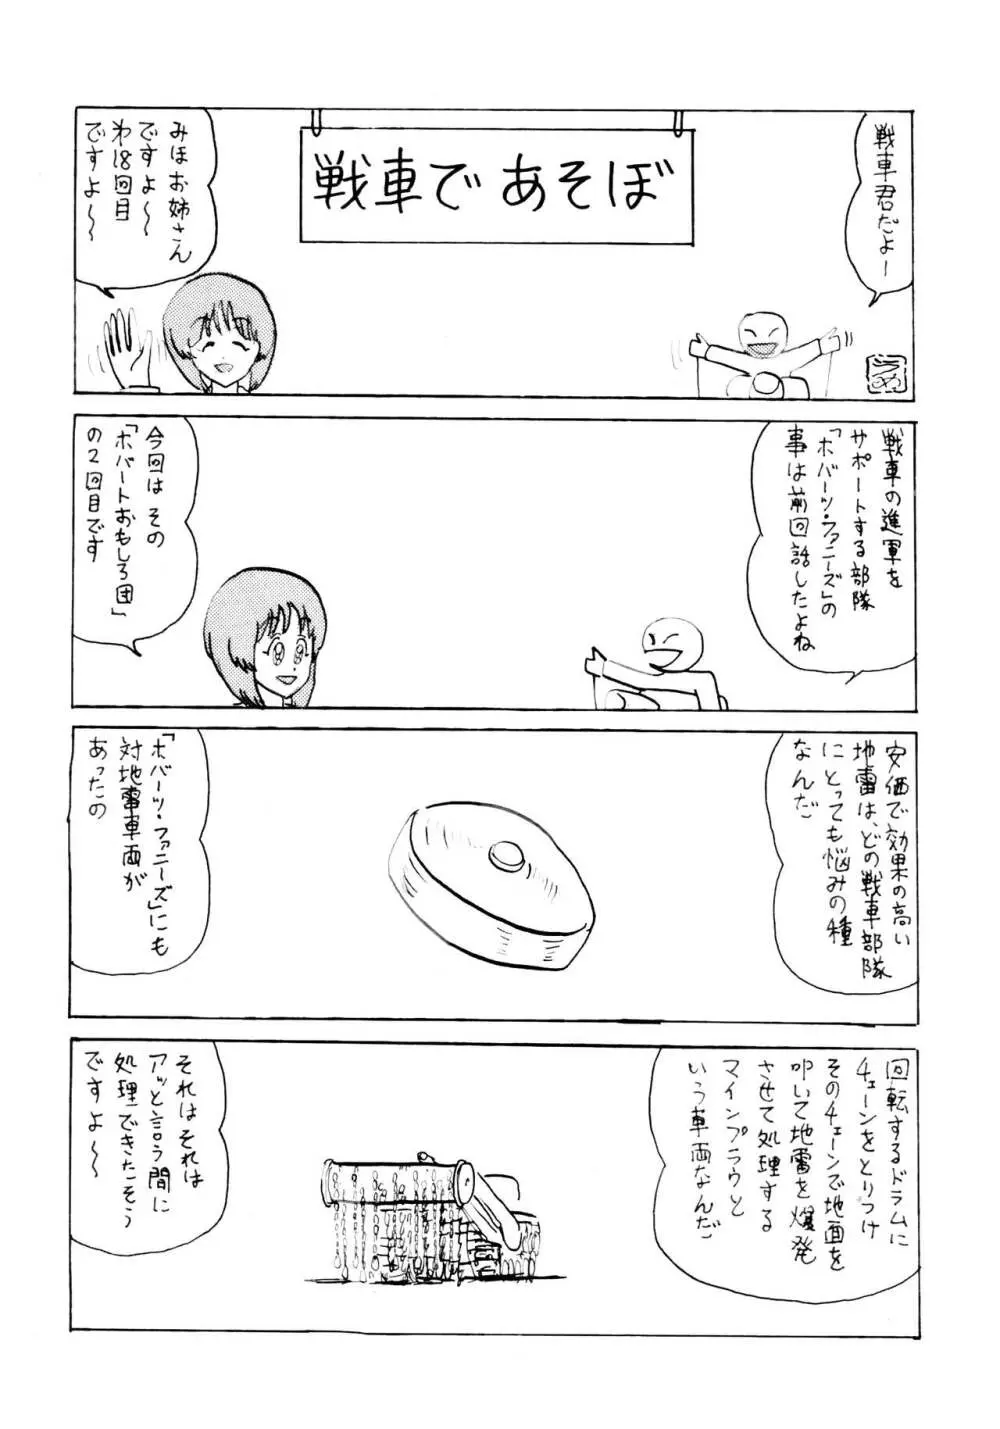 戦車であそぼ
戦車君だよー
みほお姉さん
ですよ〜
第18回目
ですよ〜
うめ
戦車の進軍を
サポートする部隊
「ホバーツ・ファニーズ」の
事は前回話したよね
今回はその
「ホバートおもしろ団」
の2回目です
安価で効果の高い
地雷は、どの戦車部隊
にとっても悩みの種
なんだ
「ホバーツ・ファニーズ」にも
対地雷車両が
あったの
回転するドラムに
チェーンをとりつけ
そのチェーンで地面を
叩いて地雷を爆発
させて処理する
マインプラウと
いう車両なんだ
それはそれは
アッと言う間に
処理できたそう
ですよ〜